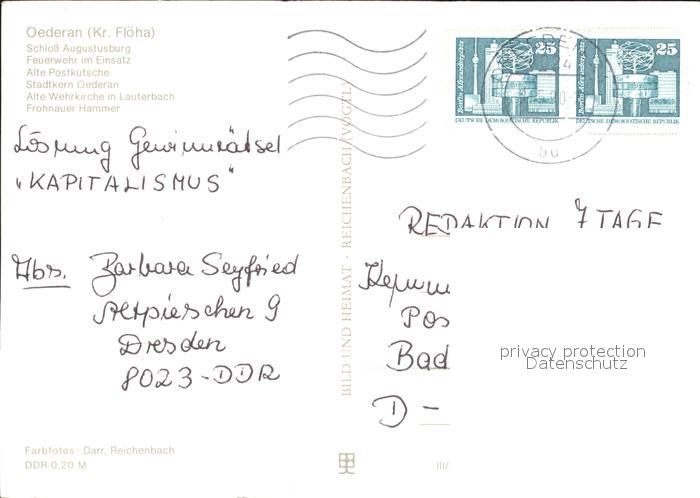 Oederan (Kr. Flöha)
Schloß Augustusburg
Feuerwehr im Einsatz
Alte Postkutsche
Stadtkern Oederan
Alte Wehrkirche in Lauterbach
Frohnauer Hammer
Lösung Gewinnrätsel
"KAPITALISMUS"
Abs. Barbara Seyfried
Altpieschen 9
Dresden
8023-DDR
Farbfotos: Darr, Reichenbach
DDR 0,20 M
BILD UND HEIMAT · REICHENBACH (VOGTL)
III/
25
Berlin, Alexanderplatz
DEUTSCHE DEMOKRATISCHE REPUBLIK
25
Berlin, Alexanderplatz
DEUTSCHE DEMOKRATISCHE REPUBLIK
REDAKTION 7 TAGE
Bad
D -
privacy protection
Datenschutz